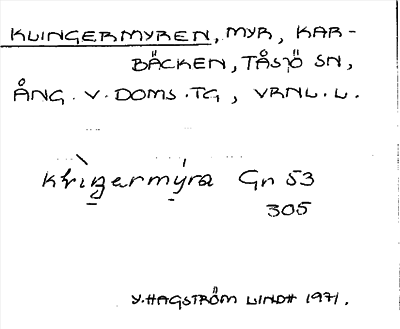 KLINGERMYREN, MYR, KAR-
BÄCKEN, TÅSJÖ SN,
ÅNG. V. DOMS. TG, VRNL. L.
Gn 53
305
Y. HAGSTRÖM LINDH 1971.